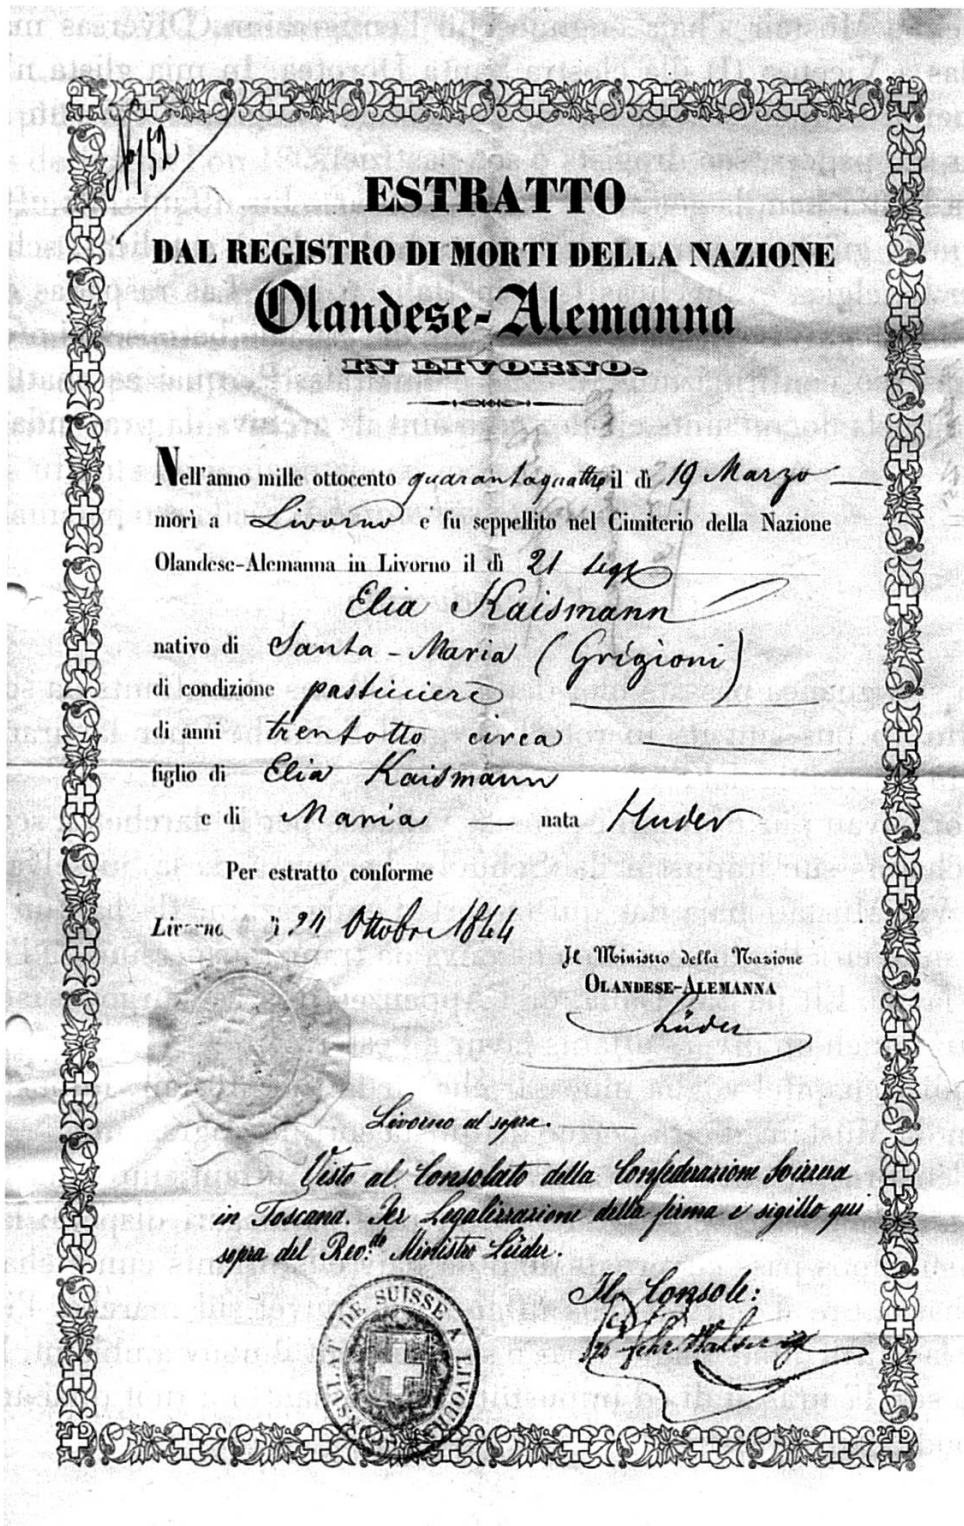 No 152
ESTRATTO
DAL REGISTRO DI MORTI DELLA NAZIONE
Olandese-Alemanna
IN LIVORNO.
Nell'anno mille ottocento quarantaquattro il dì 19 Marzo
morì a Livorno e fu seppellito nel Cimiterio della Nazione
Olandese-Alemanna in Livorno il dì 21
Elia Kaismann
nativo di Santa-Maria (Grigioni)
di condizione pasticciere
di anni trentotto circa
figlio di Elia Kaismann
e di Maria — nata Huder
Per estratto conforme
Livorno 24 Ottobre 1844
Il Ministro della Nazione
OLANDESE-ALEMANNA
Lüder
Livorno al sopra.
Visto al Consolato della Confederazione Svizzera
in Toscana. Per Legalizzazione della firma e sigillo qui
sopra del Rev:do Ministro Lüder.
Il Console:
CONSULAT DE SUISSE A LIVOURNE